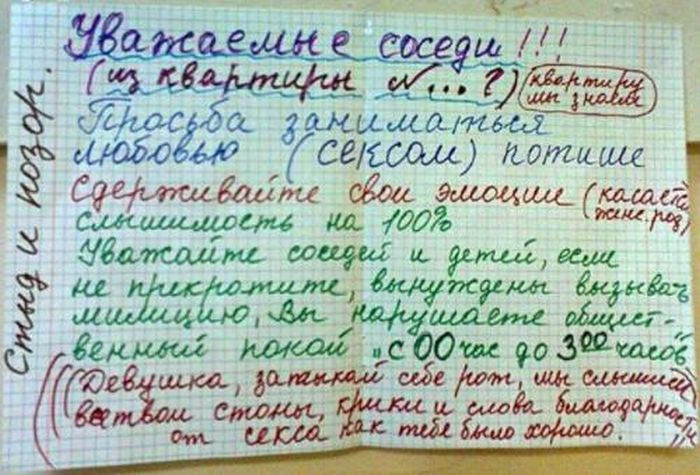 Уважаемые соседи!!!
(из квартиры №...?) (квартиру мы знаем)
Просьба заниматься
любовью (сексом) потише
Сдерживайте свои эмоции (касается женс. род)
слышимость на 100%
Уважайте соседей и детей, если
не прекратите, вынуждены вызывать
милицию, Вы нарушаете общест-
венный покой „с 00 час до 3 00 часов"
Девушка, затыкай себе рот, мы слышим
все твои стоны, крики и слова благодарности
от секса как тебе было хорошо.
Стыд и позор.